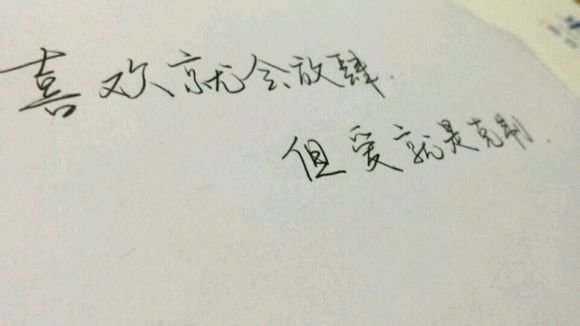 喜欢就会放肆.
但爱就是克制.